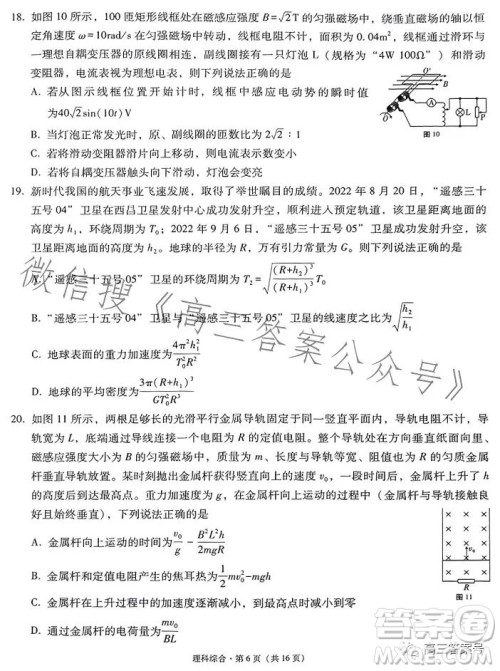 18. 如图 10 所示，100 匝矩形线框处在磁感应强度 B=√2 T 的匀强磁场中，绕垂直磁场的轴以恒
定角速度 ω=10rad/s 在匀强磁场中转动，线框电阻不计，面积为 0.04m²，线框通过滑环与
一理想自耦变压器的原线圈相连，副线圈接有一只灯泡 L（规格为“4W 100Ω”）和滑动
变阻器，电流表视为理想电表，则下列说法正确的是
A．若从图示线框位置开始计时，线框中感应电动势的瞬时值
为40√2sin(10t)V
B．当灯泡正常发光时，原、副线圈的匝数比为 2√2∶1
C．若将滑动变阻器滑片向上移动，则电流表示数增大
D．若将自耦变压器触头向下滑动，灯泡会变亮
O′
O
A
L
P
图 10
19. 新时代我国的航天事业飞速发展，取得了举世瞩目的成绩。2022 年 8 月 20 日，“遥感三十
五号 04”卫星在西昌卫星发射中心成功发射升空，卫星顺利进入预定轨道，该卫星距离地面
的高度为 h₁，环绕周期为 T₀；2022 年 9 月 6 日，“遥感三十五号 05”卫星成功发射升空，该
卫星距离地面的高度为 h₂。地球的半径为 R，万有引力常量为 G。则下列说法正确的是
A．“遥感三十五号 05”卫星的环绕周期为 T=√((R+h₂)³/(R+h₁)³) T₀
B．“遥感三十五号 04”卫星与“遥感三十五号 05”卫星的线速度之比为√(h₂/h₁)
C．地球表面的重力加速度为4π²h₁³/T₀²R²
D．地球的密度为3π(R+h₁)³/GT₀²R³
20. 如图 11 所示，两根足够长的光滑平行金属导轨固定于同一竖直平面内，导轨电阻不计，导轨
宽为 L，底端通过导线连接一个电阻为 R 的定值电阻。整个导轨所在处有方向垂直纸面向里、
磁感应强度为 B 的匀强磁场。将一质量为 m、长度与导轨等宽、阻值也为 R 的匀质金属
杆垂直导轨放置。某时刻给金属杆一竖直向上的初速度 v₀，金属杆向上运动至离出发点为 h
的高度后到达最高点。重力加速度为 g，在金属杆运动到最高点过程中（金属杆与导轨接触良
好且始终垂直），下列说法正确的是
A．金属杆向上运动的时间为v₀/g－B²L²h/2mgR
B．金属杆和定值电阻中产生的焦耳热为½mv₀²－mgh
C．金属杆在上升过程中的加速度大小均匀减小
D．金属杆向上运动的过程中，通过定值电阻的电量为mv₀/BL
v₀
R
图 11
微信搜《高三答案公众号》
答案圈
高三答案号
理科综合·第 6 页（共 16 页）